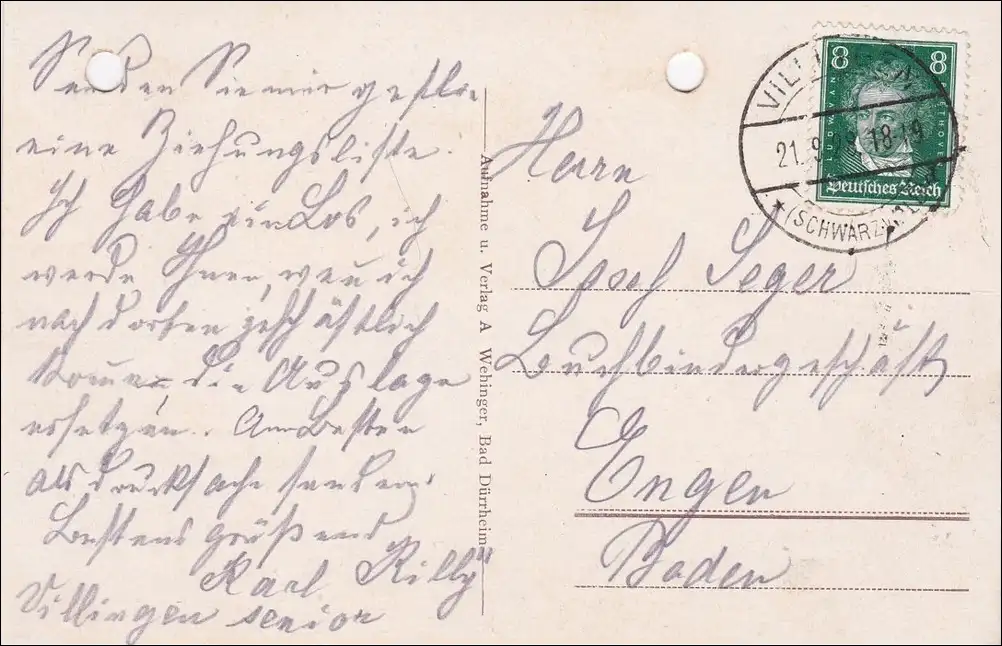 Senden Sie mir gefl.
eine Ziehungsliste.
Ich habe ein Los, ich
werde Ihnen, wenn ich
nach dorten geschäftlich
komme, die Auslage
ersetzen. Am Besten
als Drucksache senden.
Bestens grüßend
Karl Rilly
Villingen senior
Aufnahme u. Verlag A Wehinger, Bad Dürrheim
Herrn
Josef Seger
Buchbindergeschäft
Engen
Baden
8 8
LUDW VAN BEETHOVEN
Deutsches Reich
VILLINGEN
21. 9. 18-19
(SCHWARZWALD)